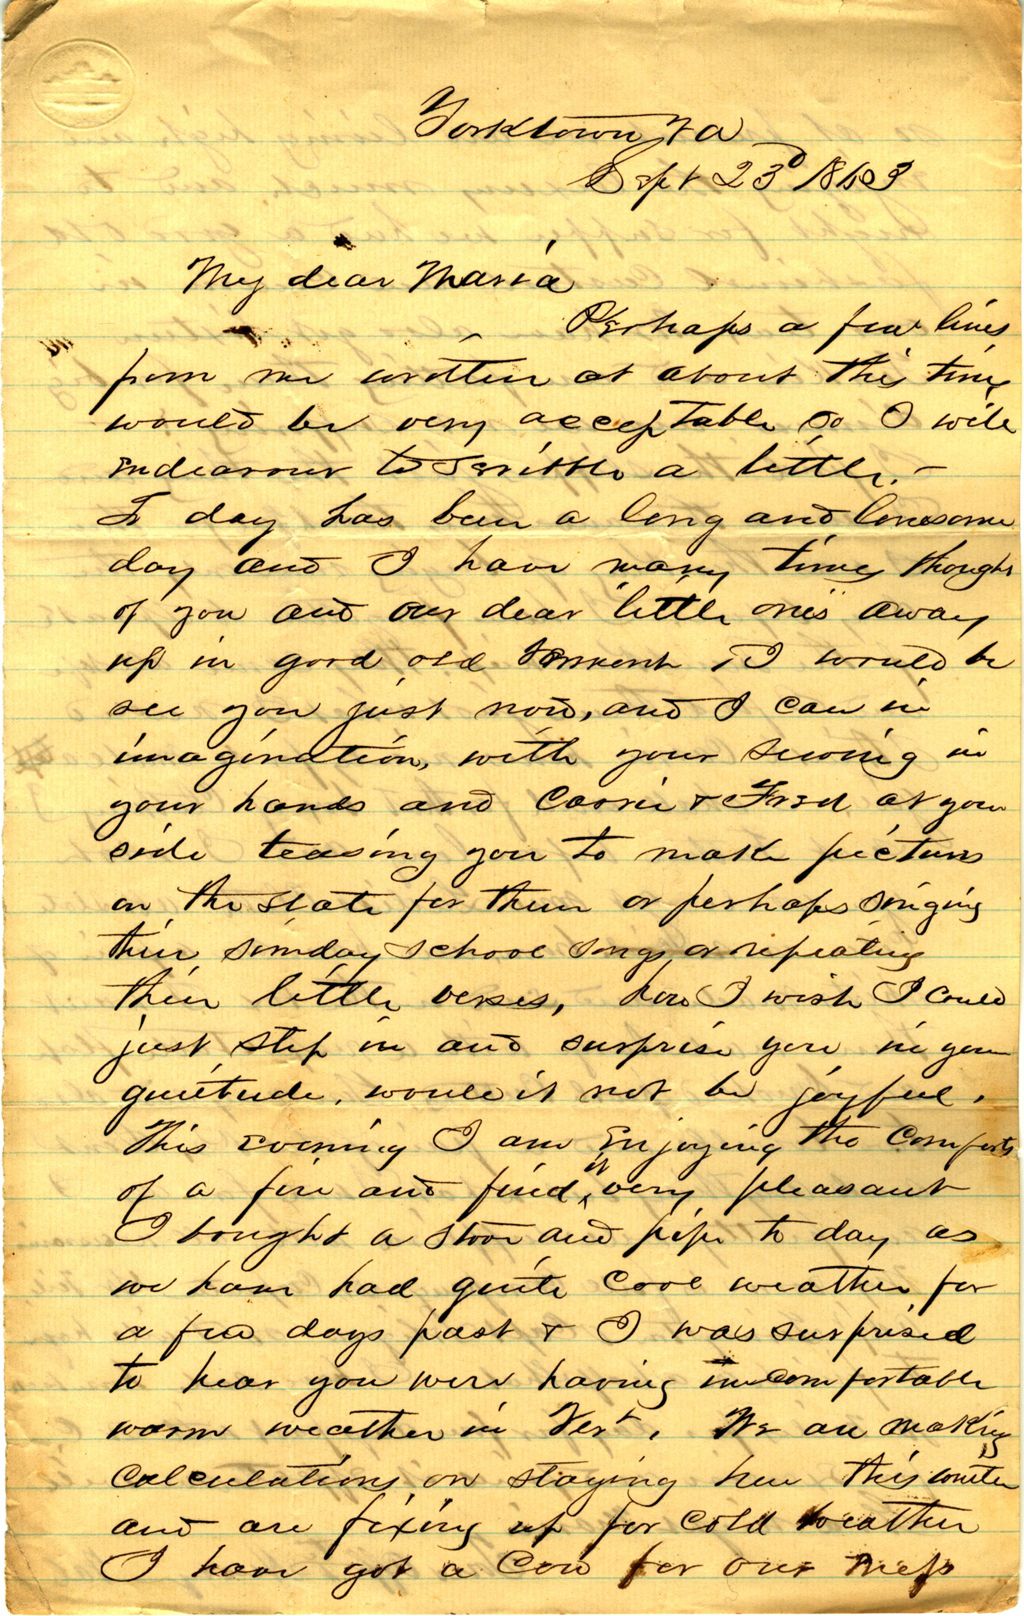 Yorktown Va
Sept 23d 1863
My dear Maria
Perhaps a few lines
from me written at about this time
would be very acceptable so I will
endeavour to scribble a little. -
To day has been a long and lonesome
day and I have many times thought
of you and our dear little ones away
up in good old Vermont I would be
see you just now, and I can in
imagination, with your sewing in
your hands and Carrie & Fred at your
side teasing you to make pictures
on the slate for them or perhaps singing
their sunday school songs or repeating
their little verses, how I wish I could
just step in and surprise you in your
quietude. would it not be joyful.
This evening I am enjoying the comforts
of a fire and find it very pleasant
I bought a stove and pipe to day as
we have had quite cool weather for
a few days past & I was surprised
to hear you were having uncomfortable
warm weather in Vert. We are making
calculations on staying here this winter
and are fixing up for cold weather
I have got a cow for our mess